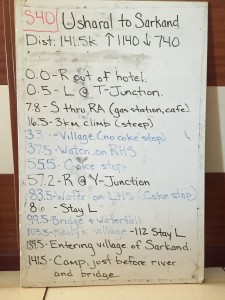 S40 Usharal to Sarkand
Dist: 141.5k ↑1140 ↓740
0.0-R out of hotel.
0.5-L @ T-Junction.
7.8-S thru RA (gas station, cafe)
16.5-3km climb (steep)
Village (no coke stop)
37.5-Water on RHS
55.5-Coke stop
57.2-R @ Y-Junction
83.5-Water on LHS (Coke stop)
Stay L
99.5-Bridge & waterfall
103.5- village -112 Stay L
Entering village of Sarkand.
141.5-Camp, just before river
and bridge